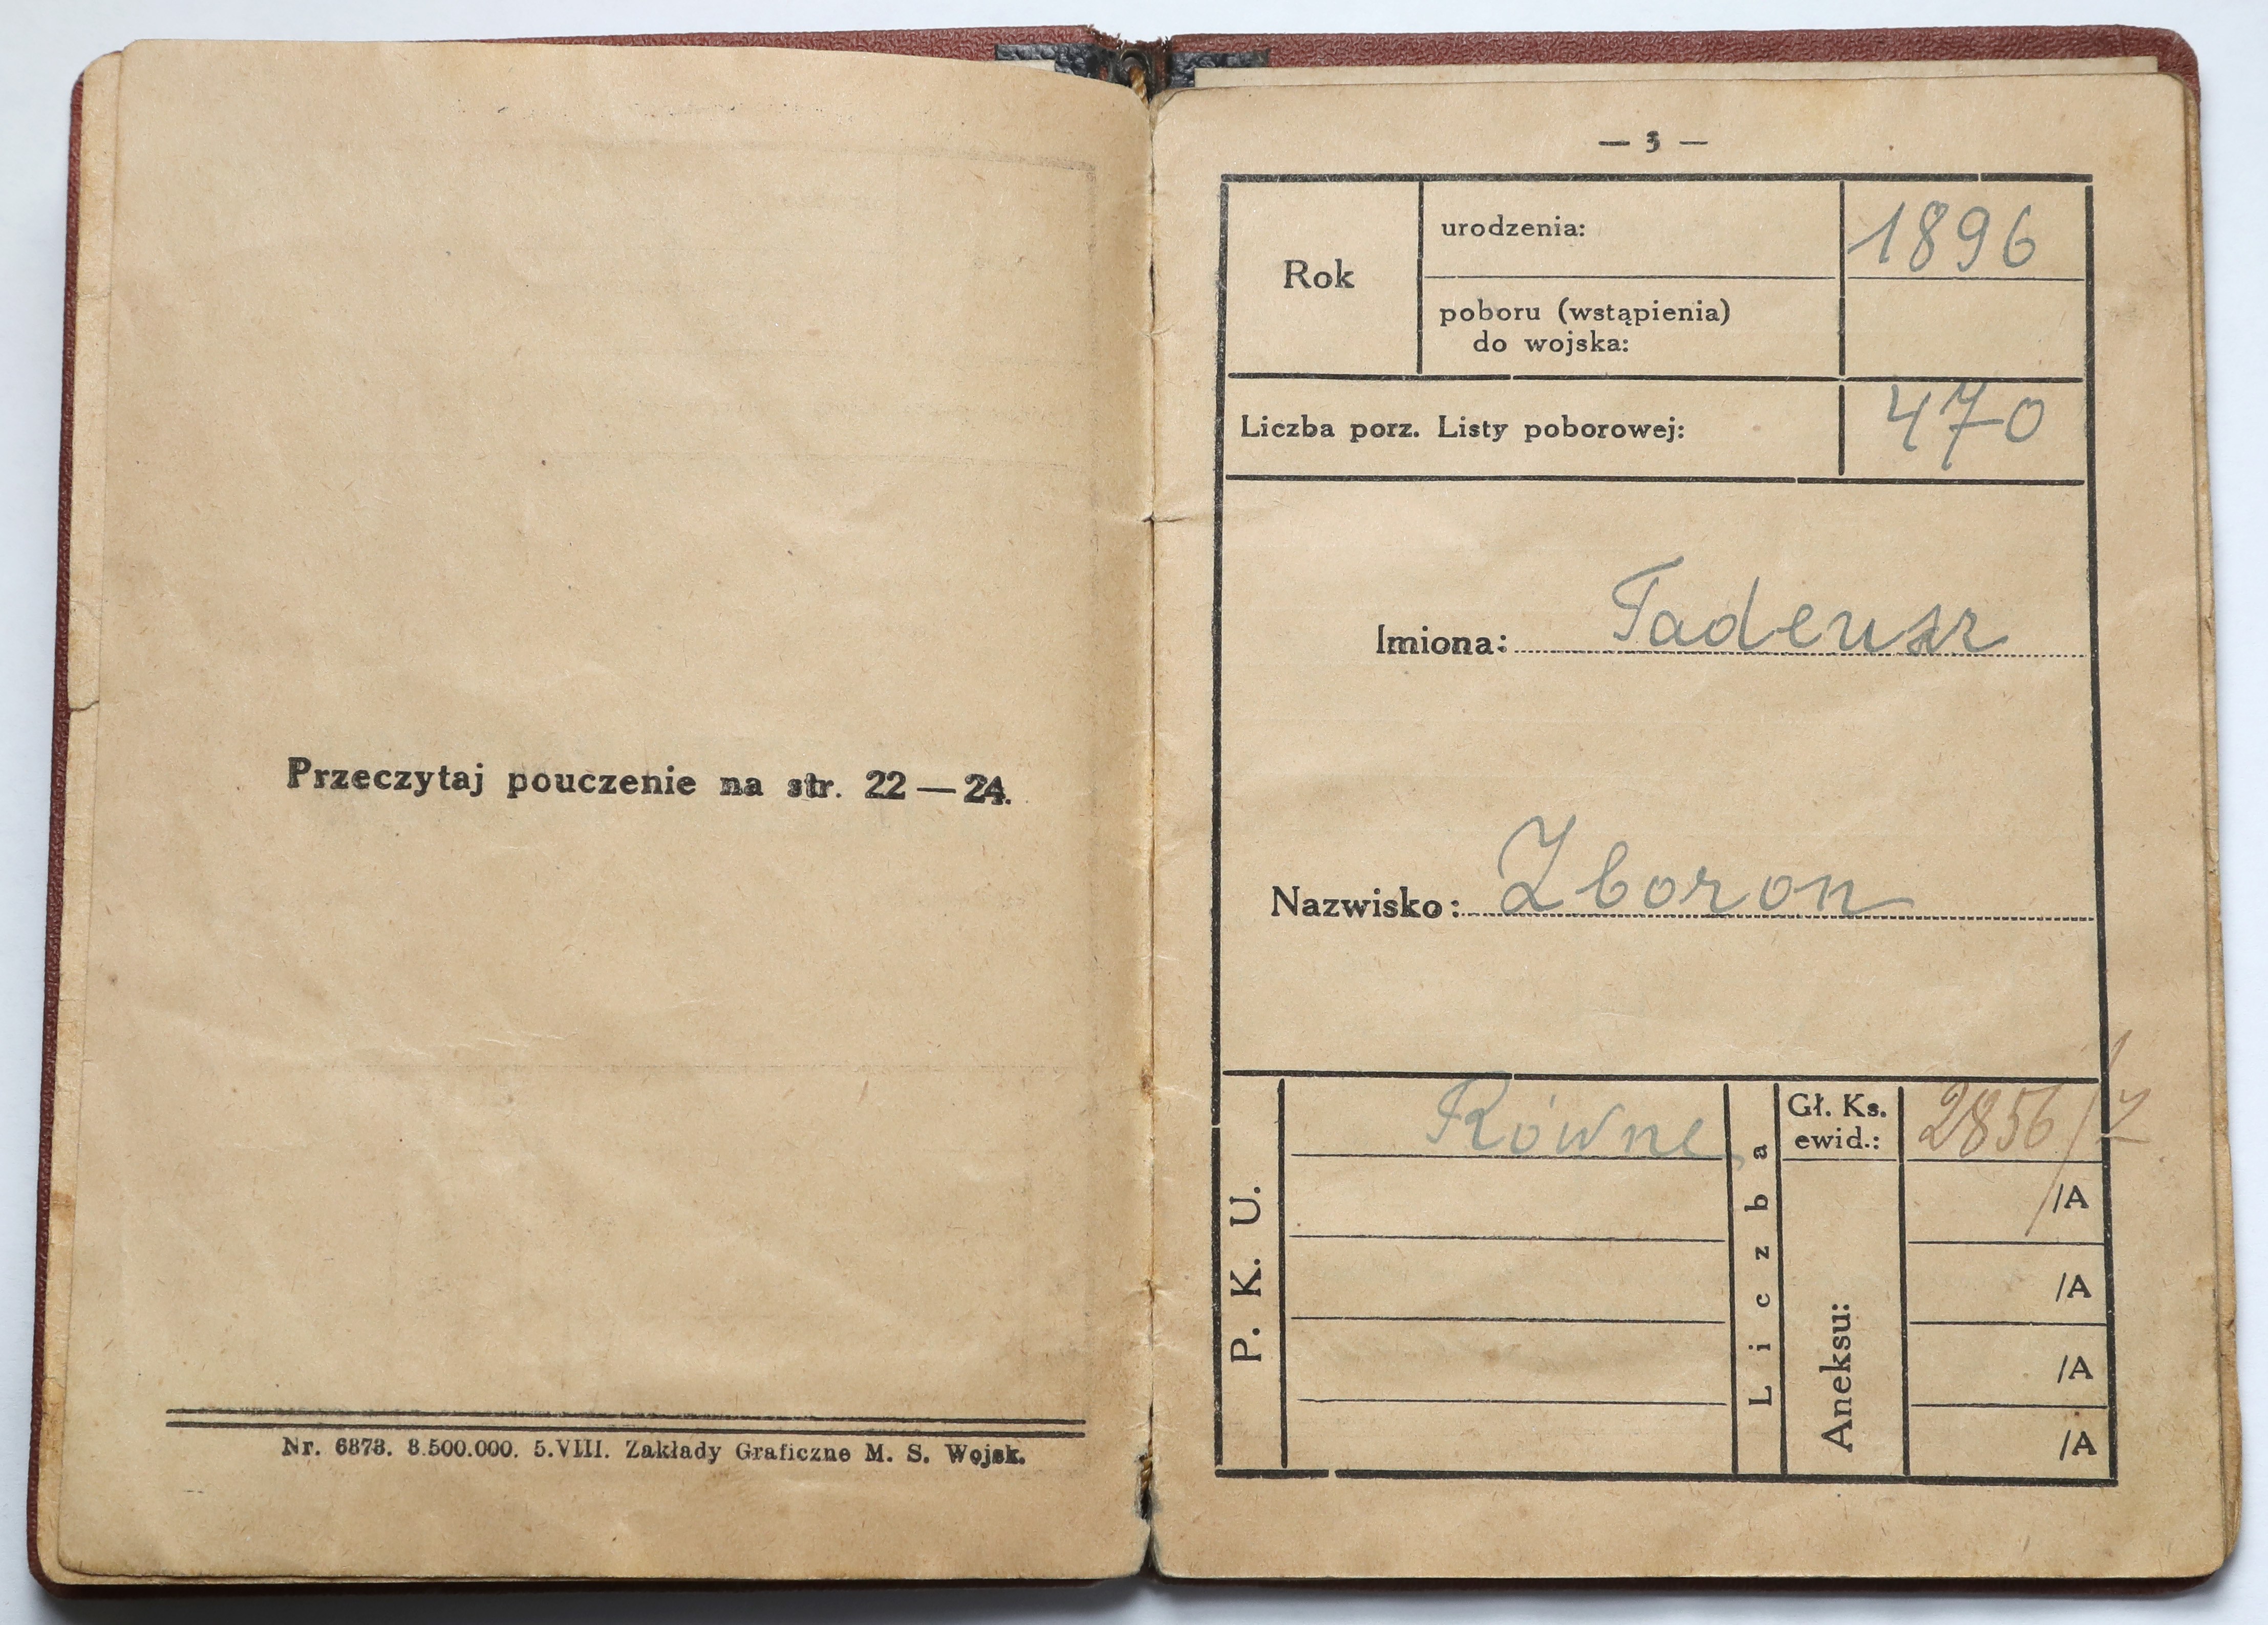 Przeczytaj pouczenie na str. 22 — 24.
Nr. 6873. 3.500.000. 5.VIII. Zakłady Graficzne M. S. Wojsk.
— 3 —
Rok
urodzenia: 1896
poboru (wstąpienia)
do wojska:
Liczba porz. Listy poborowej: 470
Imiona: Tadeusz
Nazwisko: Zboron
P. K. U.
Równe
Liczba
Gł. Ks.
ewid.: 2856/
Aneksu:
/A
/A
/A
/A